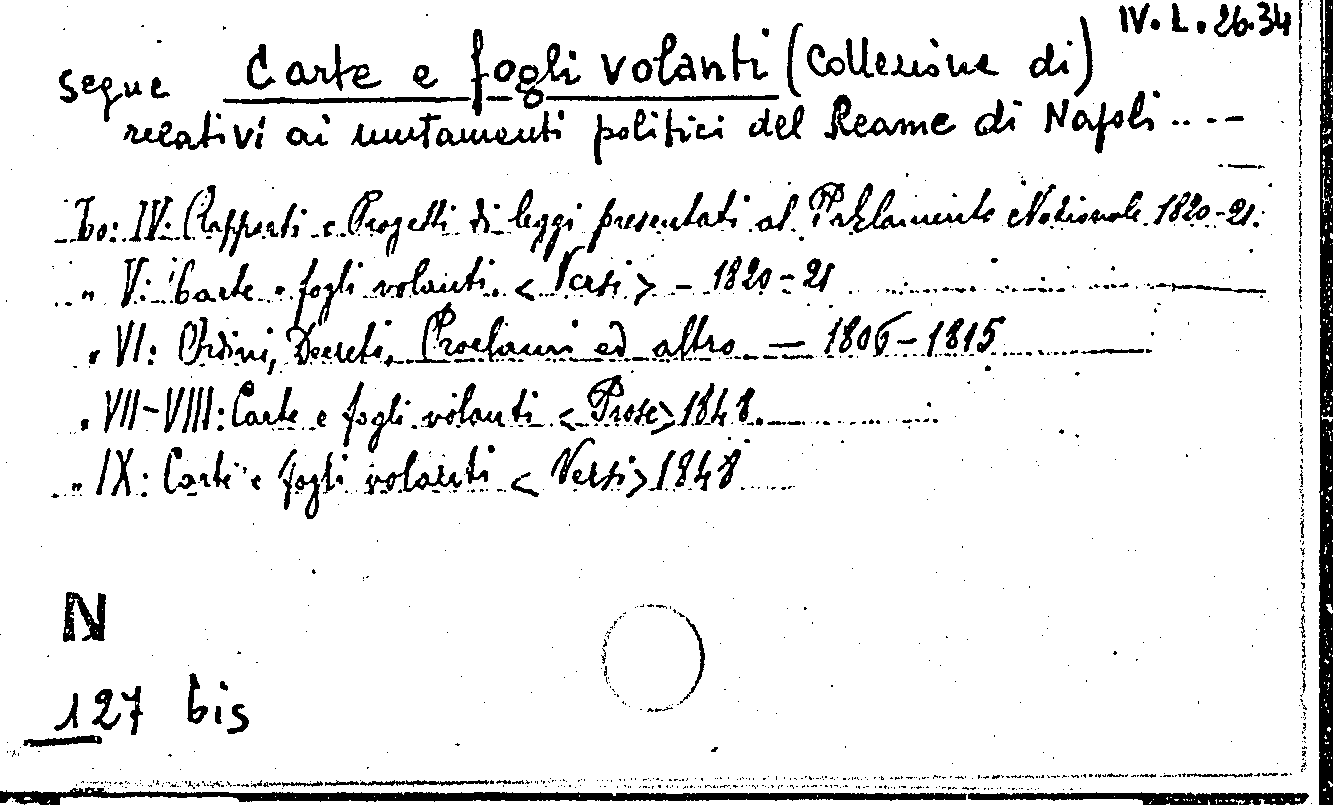 IV. L. 26.34
segue Carte e fogli volanti (Collezione di)
relativi ai mutamenti politici del Reame di Napoli ..--
To: IV: Rapporti e Progetti di leggi presentati al Parlamento Nazionale 1820-21.
" V: Carte e fogli volanti. <Versi> - 1820-21
" VI: Ordini, Decreti, Proclami ed altro - 1806-1815
" VII-VIII: Carte e fogli volanti <Prose> 1848.
" IX: Carte e fogli volanti <Versi> 1848
N
127 bis